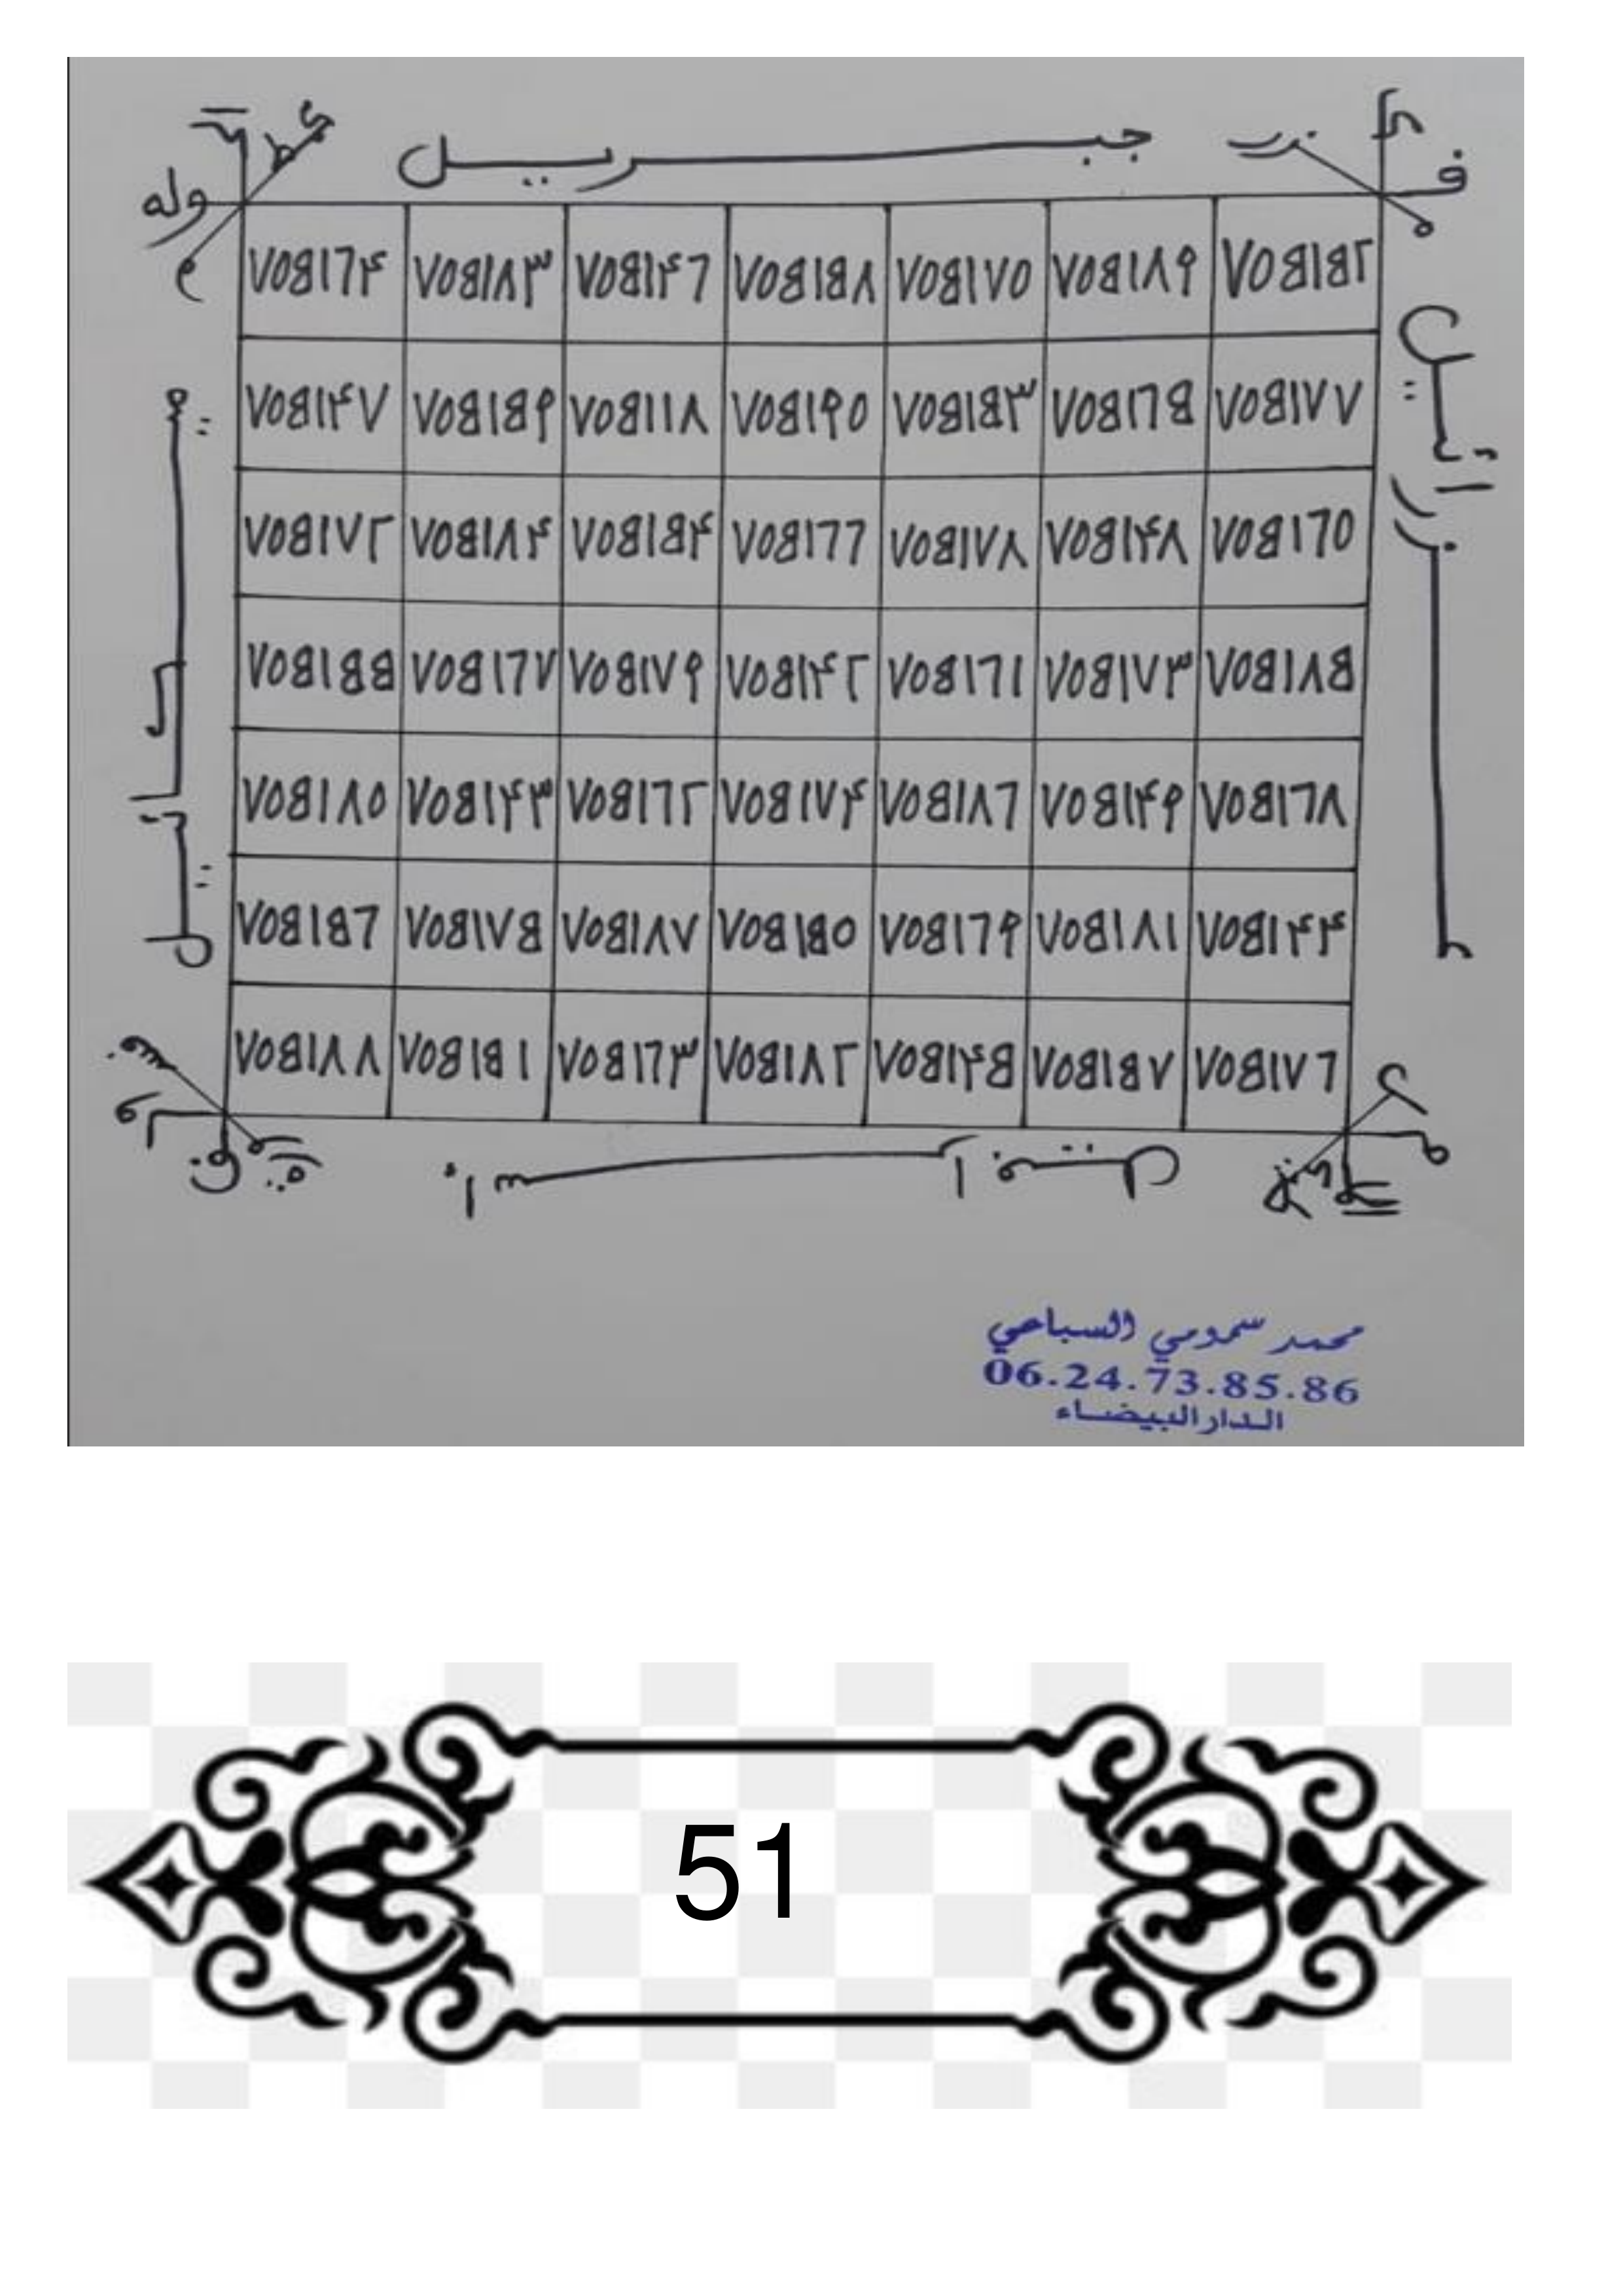 جبـرييـل
وله
٧٠٥١٦٤ ٧٠٥١٨٣ ٧٠٥١٤٦ ٧٠٥١٥٨ ٧٠٥١٧٠ ٧٠٥١٨٩ ٧٠٥١٥٢
٧٠٥١٤٧ ٧٠٥١٥٩ ٧٠٥١١٨ ٧٠٥١٩٠ ٧٠٥١٥٣ ٧٠٥١٦٥ ٧٠٥١٧٧
٧٠٥١٧٢ ٧٠٥١٨٤ ٧٠٥١٥٤ ٧٠٥١٦٦ ٧٠٥١٧٨ ٧٠٥١٤٨ ٧٠٥١٦٠
٧٠٥١٥٥ ٧٠٥١٦٧ ٧٠٥١٧٩ ٧٠٥١٤٢ ٧٠٥١٦١ ٧٠٥١٧٣ ٧٠٥١٨٥
٧٠٥١٨٠ ٧٠٥١٤٣ ٧٠٥١٦٢ ٧٠٥١٧٤ ٧٠٥١٨٦ ٧٠٥١٤٩ ٧٠٥١٦٨
٧٠٥١٥٦ ٧٠٥١٧٥ ٧٠٥١٨٧ ٧٠٥١٥٠ ٧٠٥١٦٩ ٧٠٥١٨١ ٧٠٥١٤٤
٧٠٥١٨٨ ٧٠٥١٥١ ٧٠٥١٦٣ ٧٠٥١٨٢ ٧٠٥١٤٥ ٧٠٥١٥٧ ٧٠٥١٧٦
محمد سمومي السباعي
06.24.73.85.86
الدار البيضاء
51